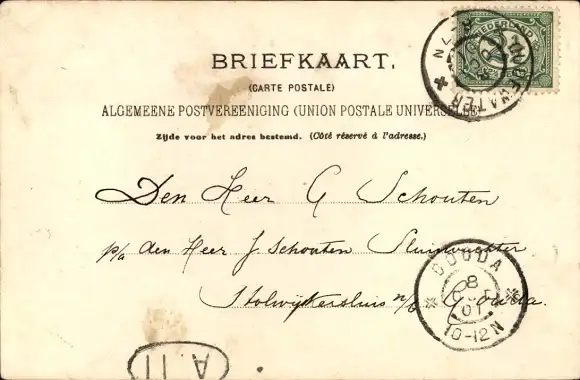 NEDERLAND
OUDEWATER
BRIEFKAART.
(CARTE POSTALE)
ALGEMEENE POSTVEREENIGING (UNION POSTALE UNIVERSELLE)
Zijde voor het adres bestemd. (Côté réservé à l'adresse.)
Den Heer G Schouten
p/a den Heer J. Schouten Sluiswachter
Stolwijkersluis n/b Gouda.
GOUDA
8
01
10-12N
A II